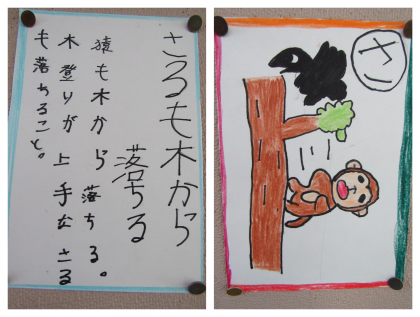 さるも木から
落ちる
猿も木から落ちる。
木登りが上手なさる
も落ちること。
さ